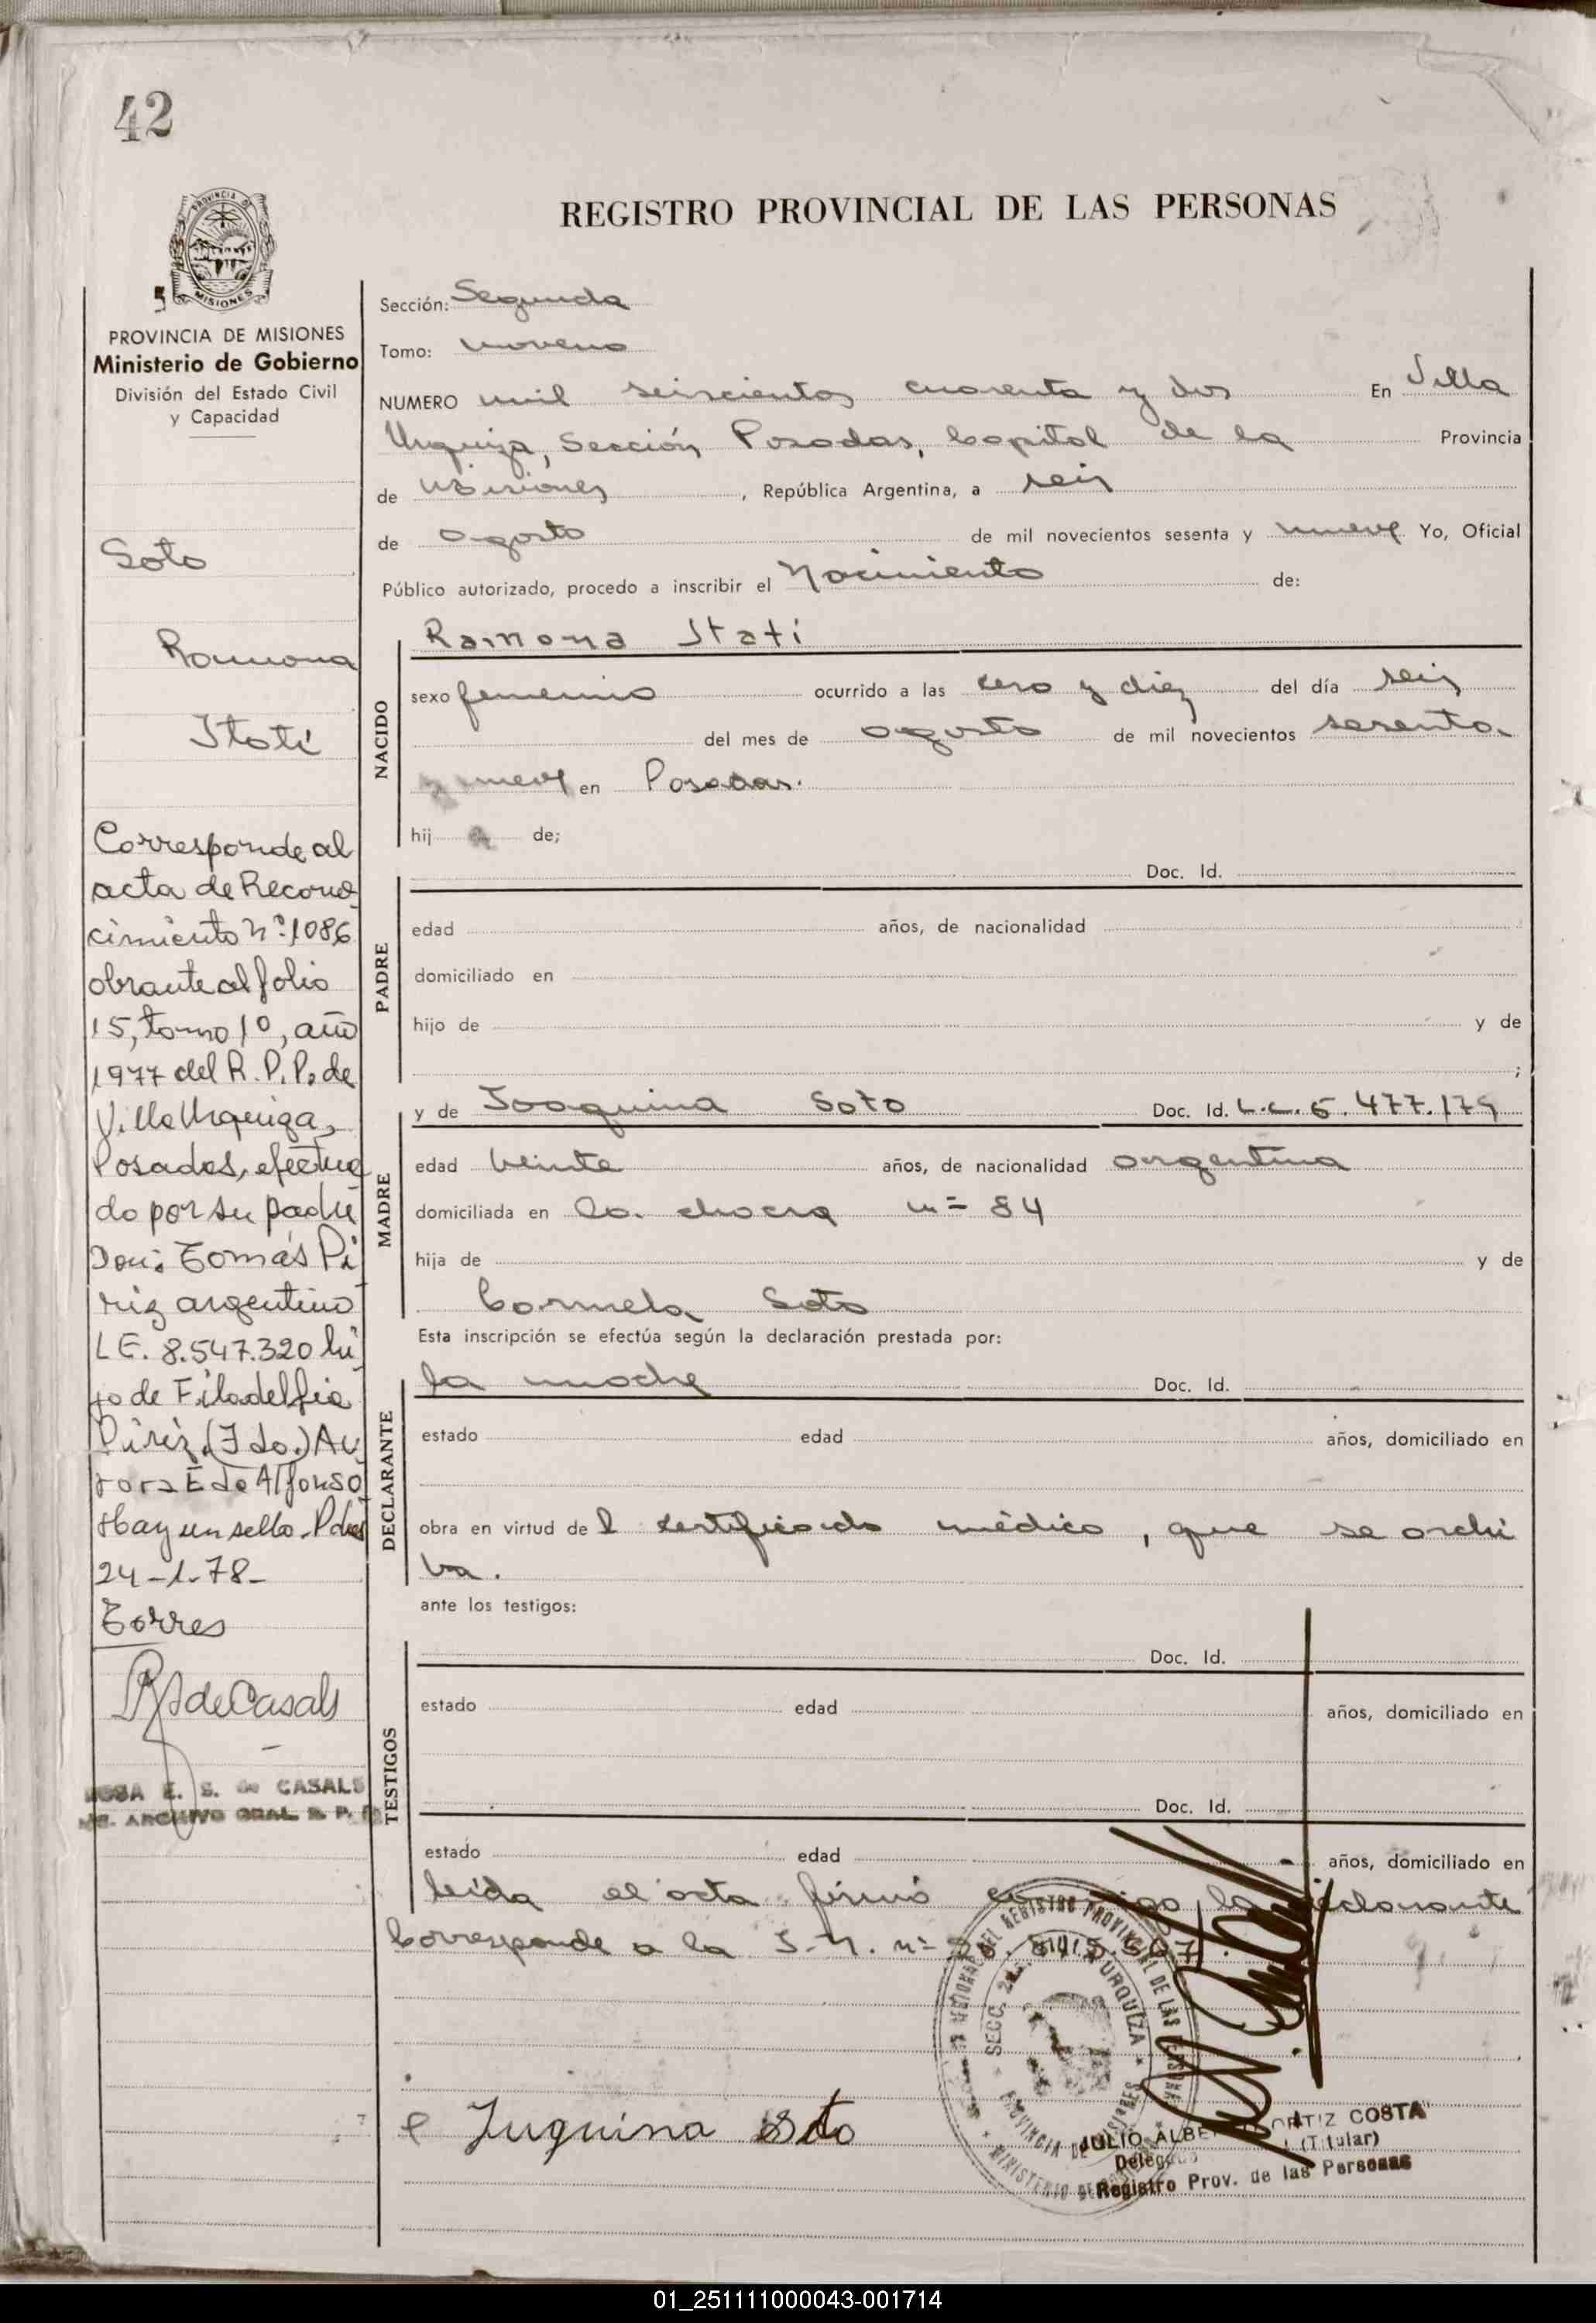 42
PROVINCIA DE
MISIONES
PROVINCIA DE MISIONES
Ministerio de Gobierno
División del Estado Civil
y Capacidad
Soto
Ramona
Itatí
Corresponde al
acta de Recono
cimiento nº 1086
obrante al folio
15, tomo 1º, año
1977 del R. P. P. de
Villa Urquiza,
Posadas, efectua
do por su padre
Don: Tomás Pi
riz argentino
L E. 8.547.320 hi
jo de Filadelfia
Píriz. (Fdo.) Au
rora E de Alfonso
Hay un sello. Pdas
24-1-78-
Torres
de Casals
E. S. de CASALS
ARCHIVO GRAL. R. P.
REGISTRO PROVINCIAL DE LAS PERSONAS
Sección: Segunda
Tomo: noveno
NUMERO mil seiscientos cuarenta y dos En Villa
Urquiza, Sección Posadas, Capital de la Provincia
de Misiones, República Argentina, a seis
de agosto de mil novecientos sesenta y nueve Yo, Oficial
Público autorizado, procedo a inscribir el Nacimiento de:
NACIDO
Ramona Itatí
sexo femenino ocurrido a las cero y diez del día seis
del mes de agosto de mil novecientos sesenta
y nueve en Posadas.
hij a de;
PADRE
Doc. Id.
edad años, de nacionalidad
domiciliado en
hijo de y de
;
MADRE
y de Joaquina Soto Doc. Id. L.C. 6.477.179
edad veinte años, de nacionalidad argentina
domiciliada en la chacra nº 84
hija de y de
Carmela Soto
Esta inscripción se efectúa según la declaración prestada por:
DECLARANTE
la madre Doc. Id.
estado edad años, domiciliado en
obra en virtud de l certificado médico, que se archi
va.
ante los testigos:
TESTIGOS
Doc. Id.
estado edad años, domiciliado en
Doc. Id.
estado edad años, domiciliado en
leída el acta firmó conmigo la declarante
Corresponde a la I-N. nº
Juquina Soto
DEL REGISTRO PROVINCIAL DE LAS PERSONAS
SECC. 2a. URQUIZA
PROVINCIA DE MISIONES
MINISTERIO DE
JULIO ORTIZ COSTA
(Titular)
Delegado
Registro Prov. de las Personas
01_251111000043-001714